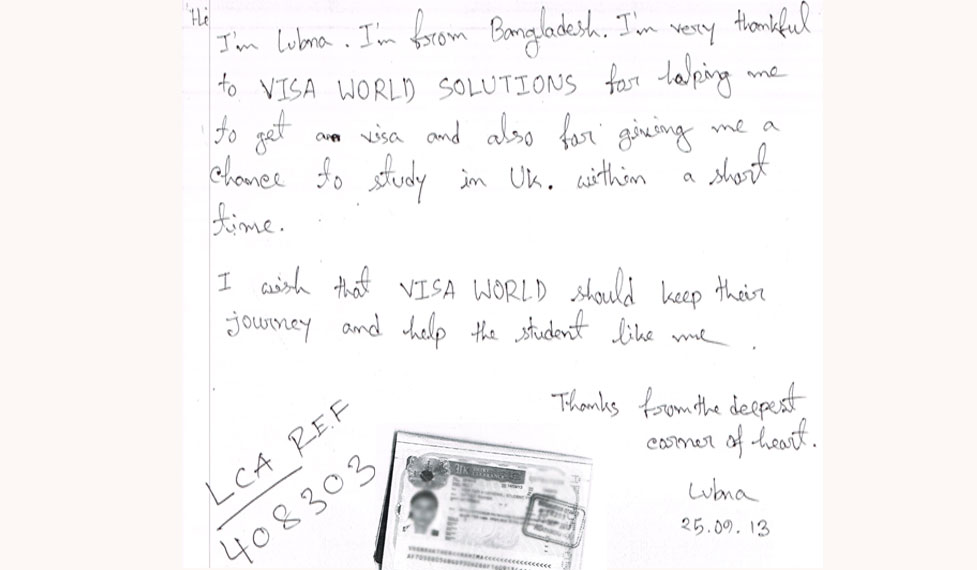 Hi
I'm Lubna. I'm from Bangladesh. I'm very thankful
to VISA WORLD SOLUTIONS for helping me
to get an visa and also for giving me a
chance to study in Uk. within a short
time.
I wish that VISA WORLD should keep their
journey and help the student like me.
Thanks from the deepest
corner of heart.
Lubna
25.09.13
LCA REF
408303
UK